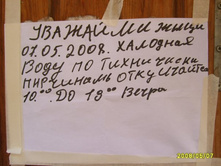 УВАЖАЙМИ жильци
07.05.2008. ХАЛОДНАЯ
ВОДУ ПО ТИХНИЧИСКИ
ПИРЧИНАМЬ ОТКУЧАЙТСЯ
10.00 ДО 18.00 Вечра
2008/05/07